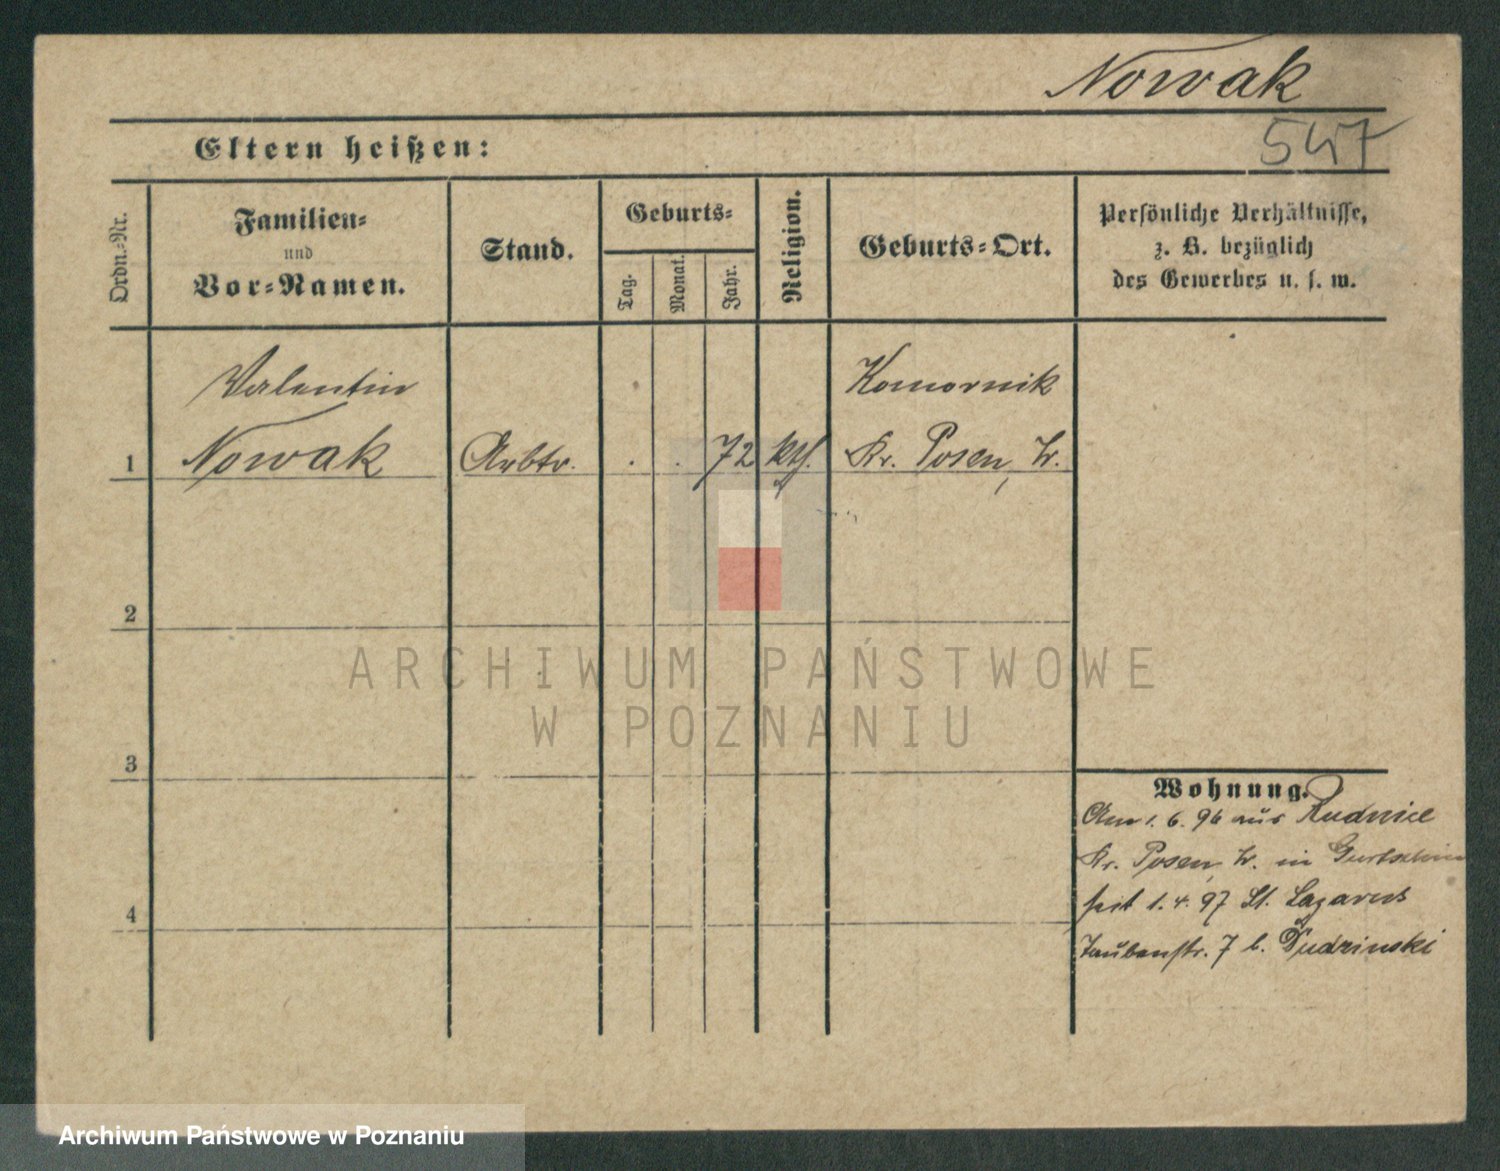 Nowak
547
Eltern heißen:
Ordn.-Nr.
Familien-
und
Vor-Namen.
Stand.
Geburts-
Tag.
Monat.
Jahr.
Religion.
Geburts-Ort.
Persönliche Verhältnisse,
z. B. bezüglich
des Gewerbes u. s. w.
Valentin
Komornik
1 Nowak Arbtr. . . 72 kth. Kr. Posen, W.
2
ARCHIWUM PAŃSTWOWE
W POZNANIU
3
Wohnung.
Am 1. 6. 96 aus Rudnice
Kr. Posen, W. in Gurtschin
seit 1. 4. 97 St. Lazarus
4
Taubenstr. 7 b. Dudzinski
Archiwum Państwowe w Poznaniu